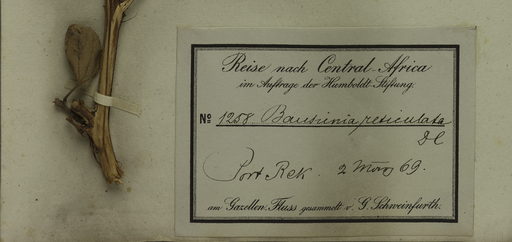 Reise nach Central-Africa
im Auftrage der Humboldt-Stiftung.
No 1258. Bauhinia reticulata
DC
Port Rek. 2 März 69.
am Gazellen-Fluss gesammelt v. G. Schweinfurth.